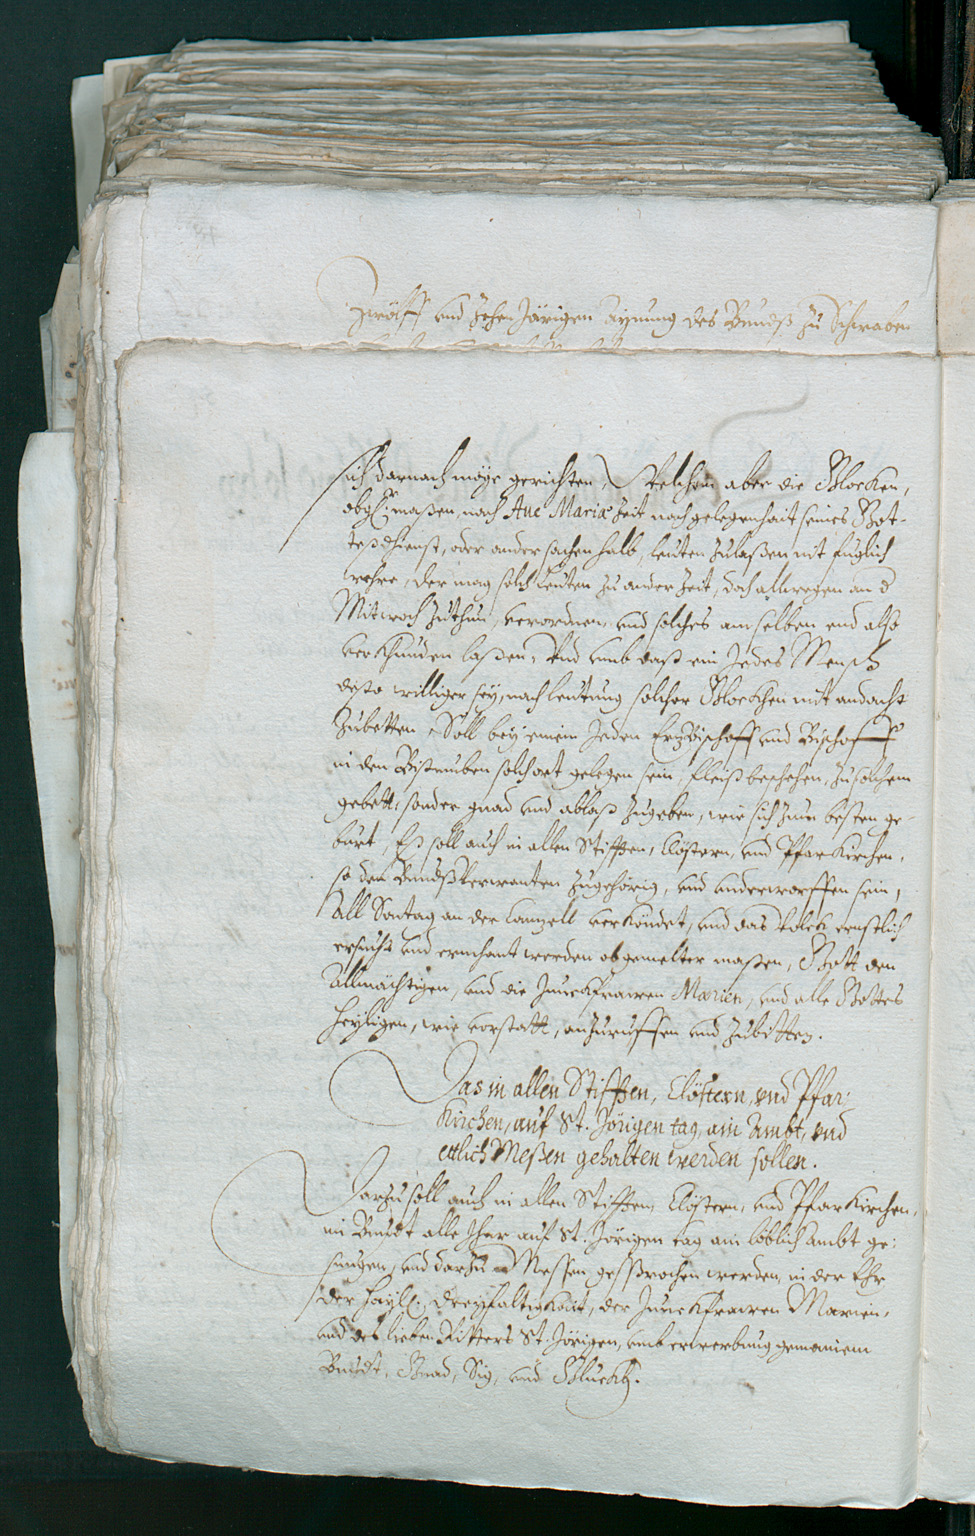 Zwölff und Zehen Järigen aynung des Bundß zu Schwaben
sich darnach möge gerichten, Welchem aber die Glocken,
obg. maßen, nach Aue Maria Zeit nach gelegenhait seines Got-
teßdhienst, oder ander sachen halb, leuten zulaßen nit füglich
wehre, der mag solch leuten zu ander Zeit, doch allwegen an d
Mitwoch zuthun, verordnen, und solches am selben end also
verkhünden laßen, Und umb daß ein Jedes Mensch
desto williger sey, nach leutung solcher Glockhen mit andacht
zubetten, Soll bey einem Jeden ErzBischoff und Bischoff
in den Bistumben solch ort gelegen sein, fleiß beschehen, zu solchem
gebett, sonder gnad und ablaß zugeben, wie sich zum besten ge-
bürt, Eß soll auch in allen Stifften, Clöstern, und Pfarkirchen,
so den Bundßverwanten zugehörig, und underworffen sein,
All Sontag an der Canzell verkündet, und das volck ernstlich
ersucht und ermhant werden obgemelter maßen, Gott den
Allmächtigen, und die Junckfrawen Marien, und alle Gottes
heyligen, wie vorstatt, anzuruffen und zubitten.
Das in allen Stifften, Clöstern, und Pfar-
kirchen, auf St. Jörigen tag, ain Ambt, und
ettlich Meßen gehalten werden sollen.
Darzu soll auch in allen Stifften, Clöstern, und Pfarkirchen,
im Bundt alle Jhar auf St. Jörigen tag ain löblich Ambt ge-
sungen, und darzu Messen gesprochen werden, in der Ehr
der hayl. Dreyfaltigkait, der Junckfrawen Marien,
und des lieben Ritters St. Jörigen, umb erwerbung gemainem
Bundt, Gnad, Sig, und Glückh.